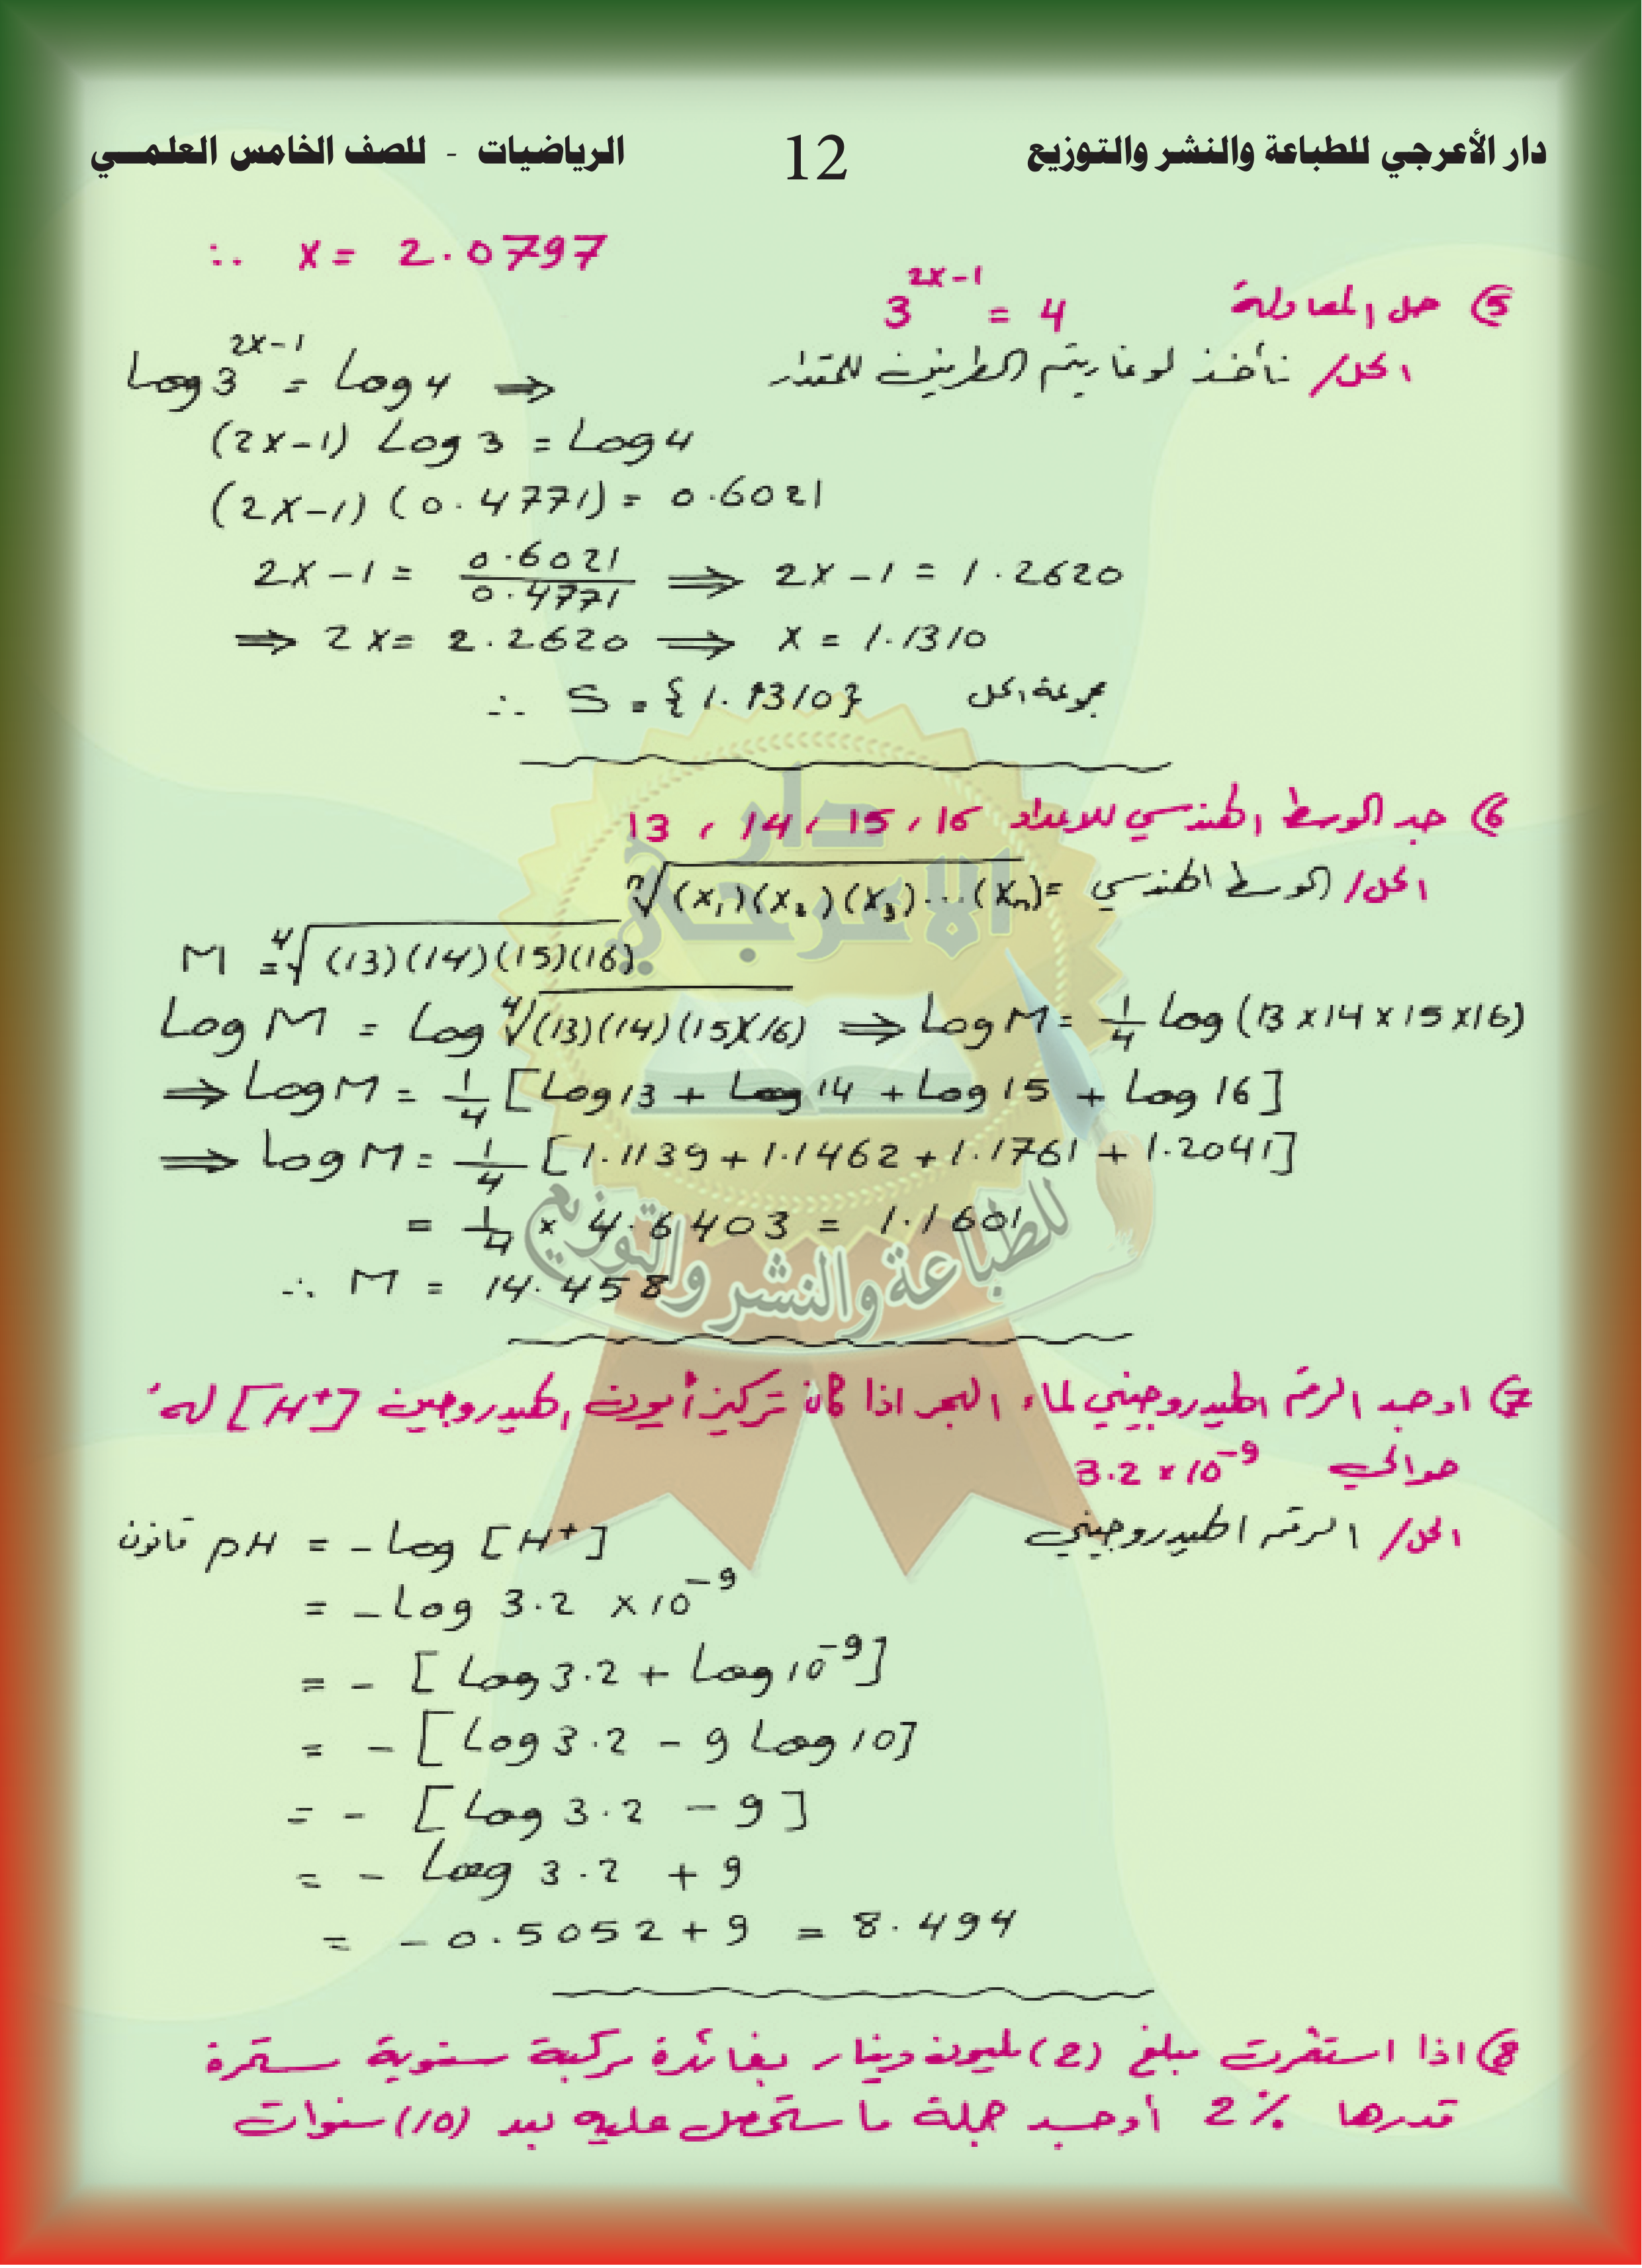 دار الأعرجي للطباعة والنشر والتوزيع 12 الرياضيات - للصف الخامس العلمي
∴ x = 2.0797
5) حل المعادلة 3^{2x-1} = 4
الحل/ نأخذ لوغاريتم الطرفين للمقدار
Log 3^{2x-1} = Log 4 ⇒
(2x-1) Log 3 = Log 4
(2x-1) (0.4771) = 0.6021
2x-1 = 0.6021/0.4771 ⇒ 2x-1 = 1.2620
⇒ 2x = 2.2620 ⇒ x = 1.1310
∴ S = {1.1310} مجموعة الحل
6) جد الوسط الهندسي للاعداد 13 ، 14 ، 15 ، 16
الحل/ الوسط الهندسي = ⁿ√(x₁)(x₂)(x₃)...(xₙ)
M = ⁴√(13)(14)(15)(16)
Log M = Log ⁴√(13)(14)(15)(16) ⇒ Log M = 1/4 Log (13×14×15×16)
⇒ Log M = 1/4 [Log 13 + Log 14 + Log 15 + Log 16]
⇒ Log M = 1/4 [1.1139 + 1.1462 + 1.1761 + 1.2041]
= 1/4 × 4.6403 = 1.1601
∴ M = 14.458
7) اوجد الرقم الهيدروجيني لماء البحر اذا كان تركيز أيون الهيدروجين [H⁺] له
حوالي 3.2 × 10⁻⁹
الحل/ الرقم الهيدروجيني pH = -Log [H⁺] قانون
= -Log 3.2 × 10⁻⁹
= - [Log 3.2 + Log 10⁻⁹]
= - [Log 3.2 - 9 Log 10]
= - [Log 3.2 - 9]
= - Log 3.2 + 9
= - 0.5052 + 9 = 8.494
8) اذا استثمرت مبلغ (2) مليون دينار بفائدة مركبة سنوية مستمرة
قدرها 2% أوجد جملة ما ستحصل عليه بعد (10) سنوات
دار
الاعرجي
للطباعة والنشر والتوزيع